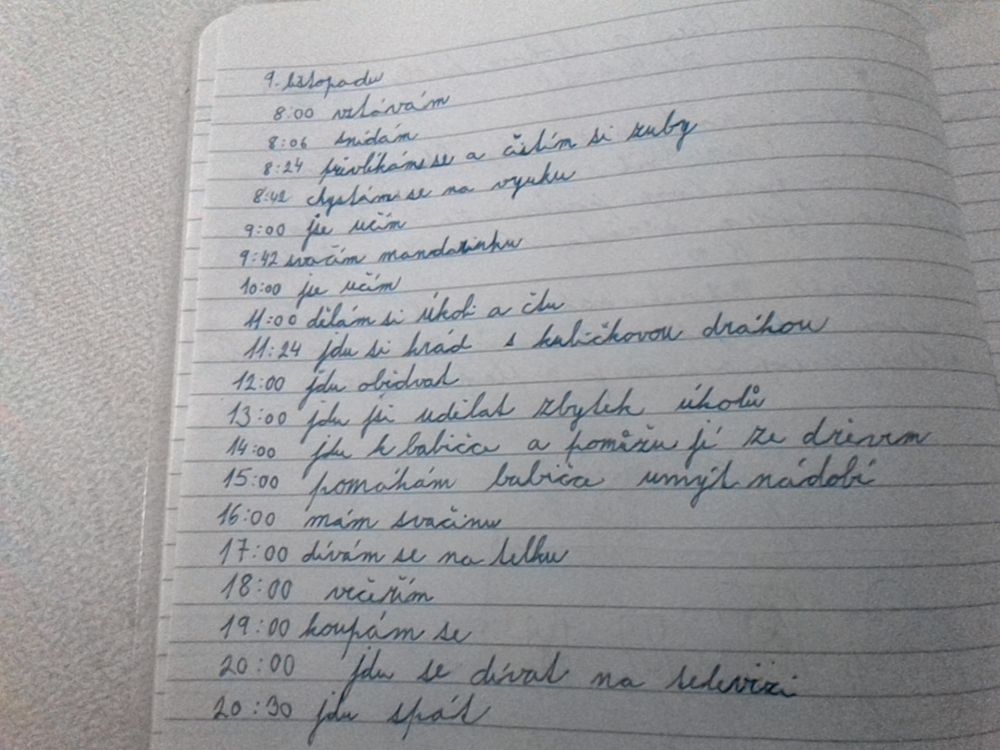 9. listopadu
8:00 vstávám
8:06 snídám
8:24 převlíkám se a čistím si zuby
8:42 chystám se na vyuku
9:00 se učím
9:42 svačím mandarinku
10:00 se učím
11:00 dělám si úkoli a čtu
11:24 jdu si hrád s kuličkovou dráhou
12:00 jdu obidvat
13:00 jdu si udělat zbytek úkolů
14:00 jdu k babičce a pomůžu jí ze dřevem
15:00 pomáhám babičce umýt nádobí
16:00 mám svačinu
17:00 dívám se na telku
18:00 večeřím
19:00 koupám se
20:00 jdu se dívat na televizi
20:30 jdu spát